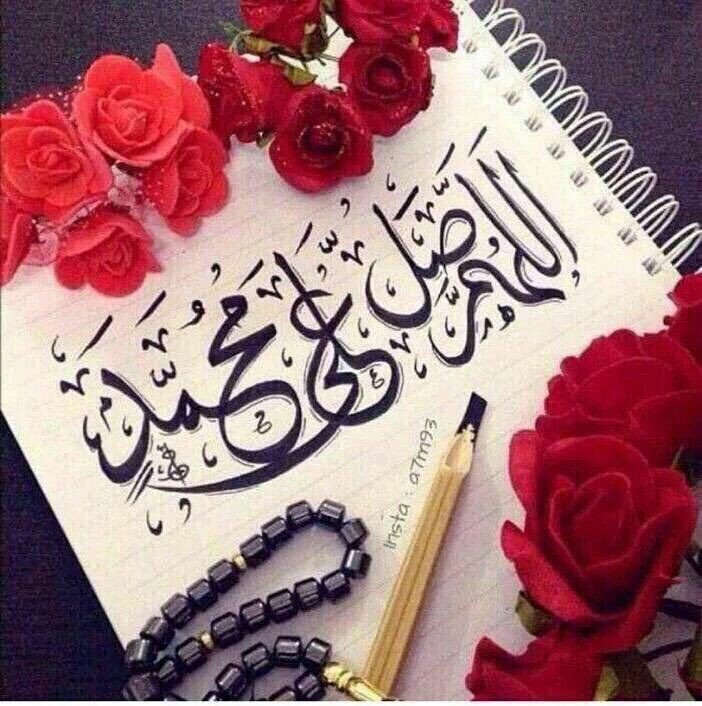 اللهم صل على محمد
insta : a7m93